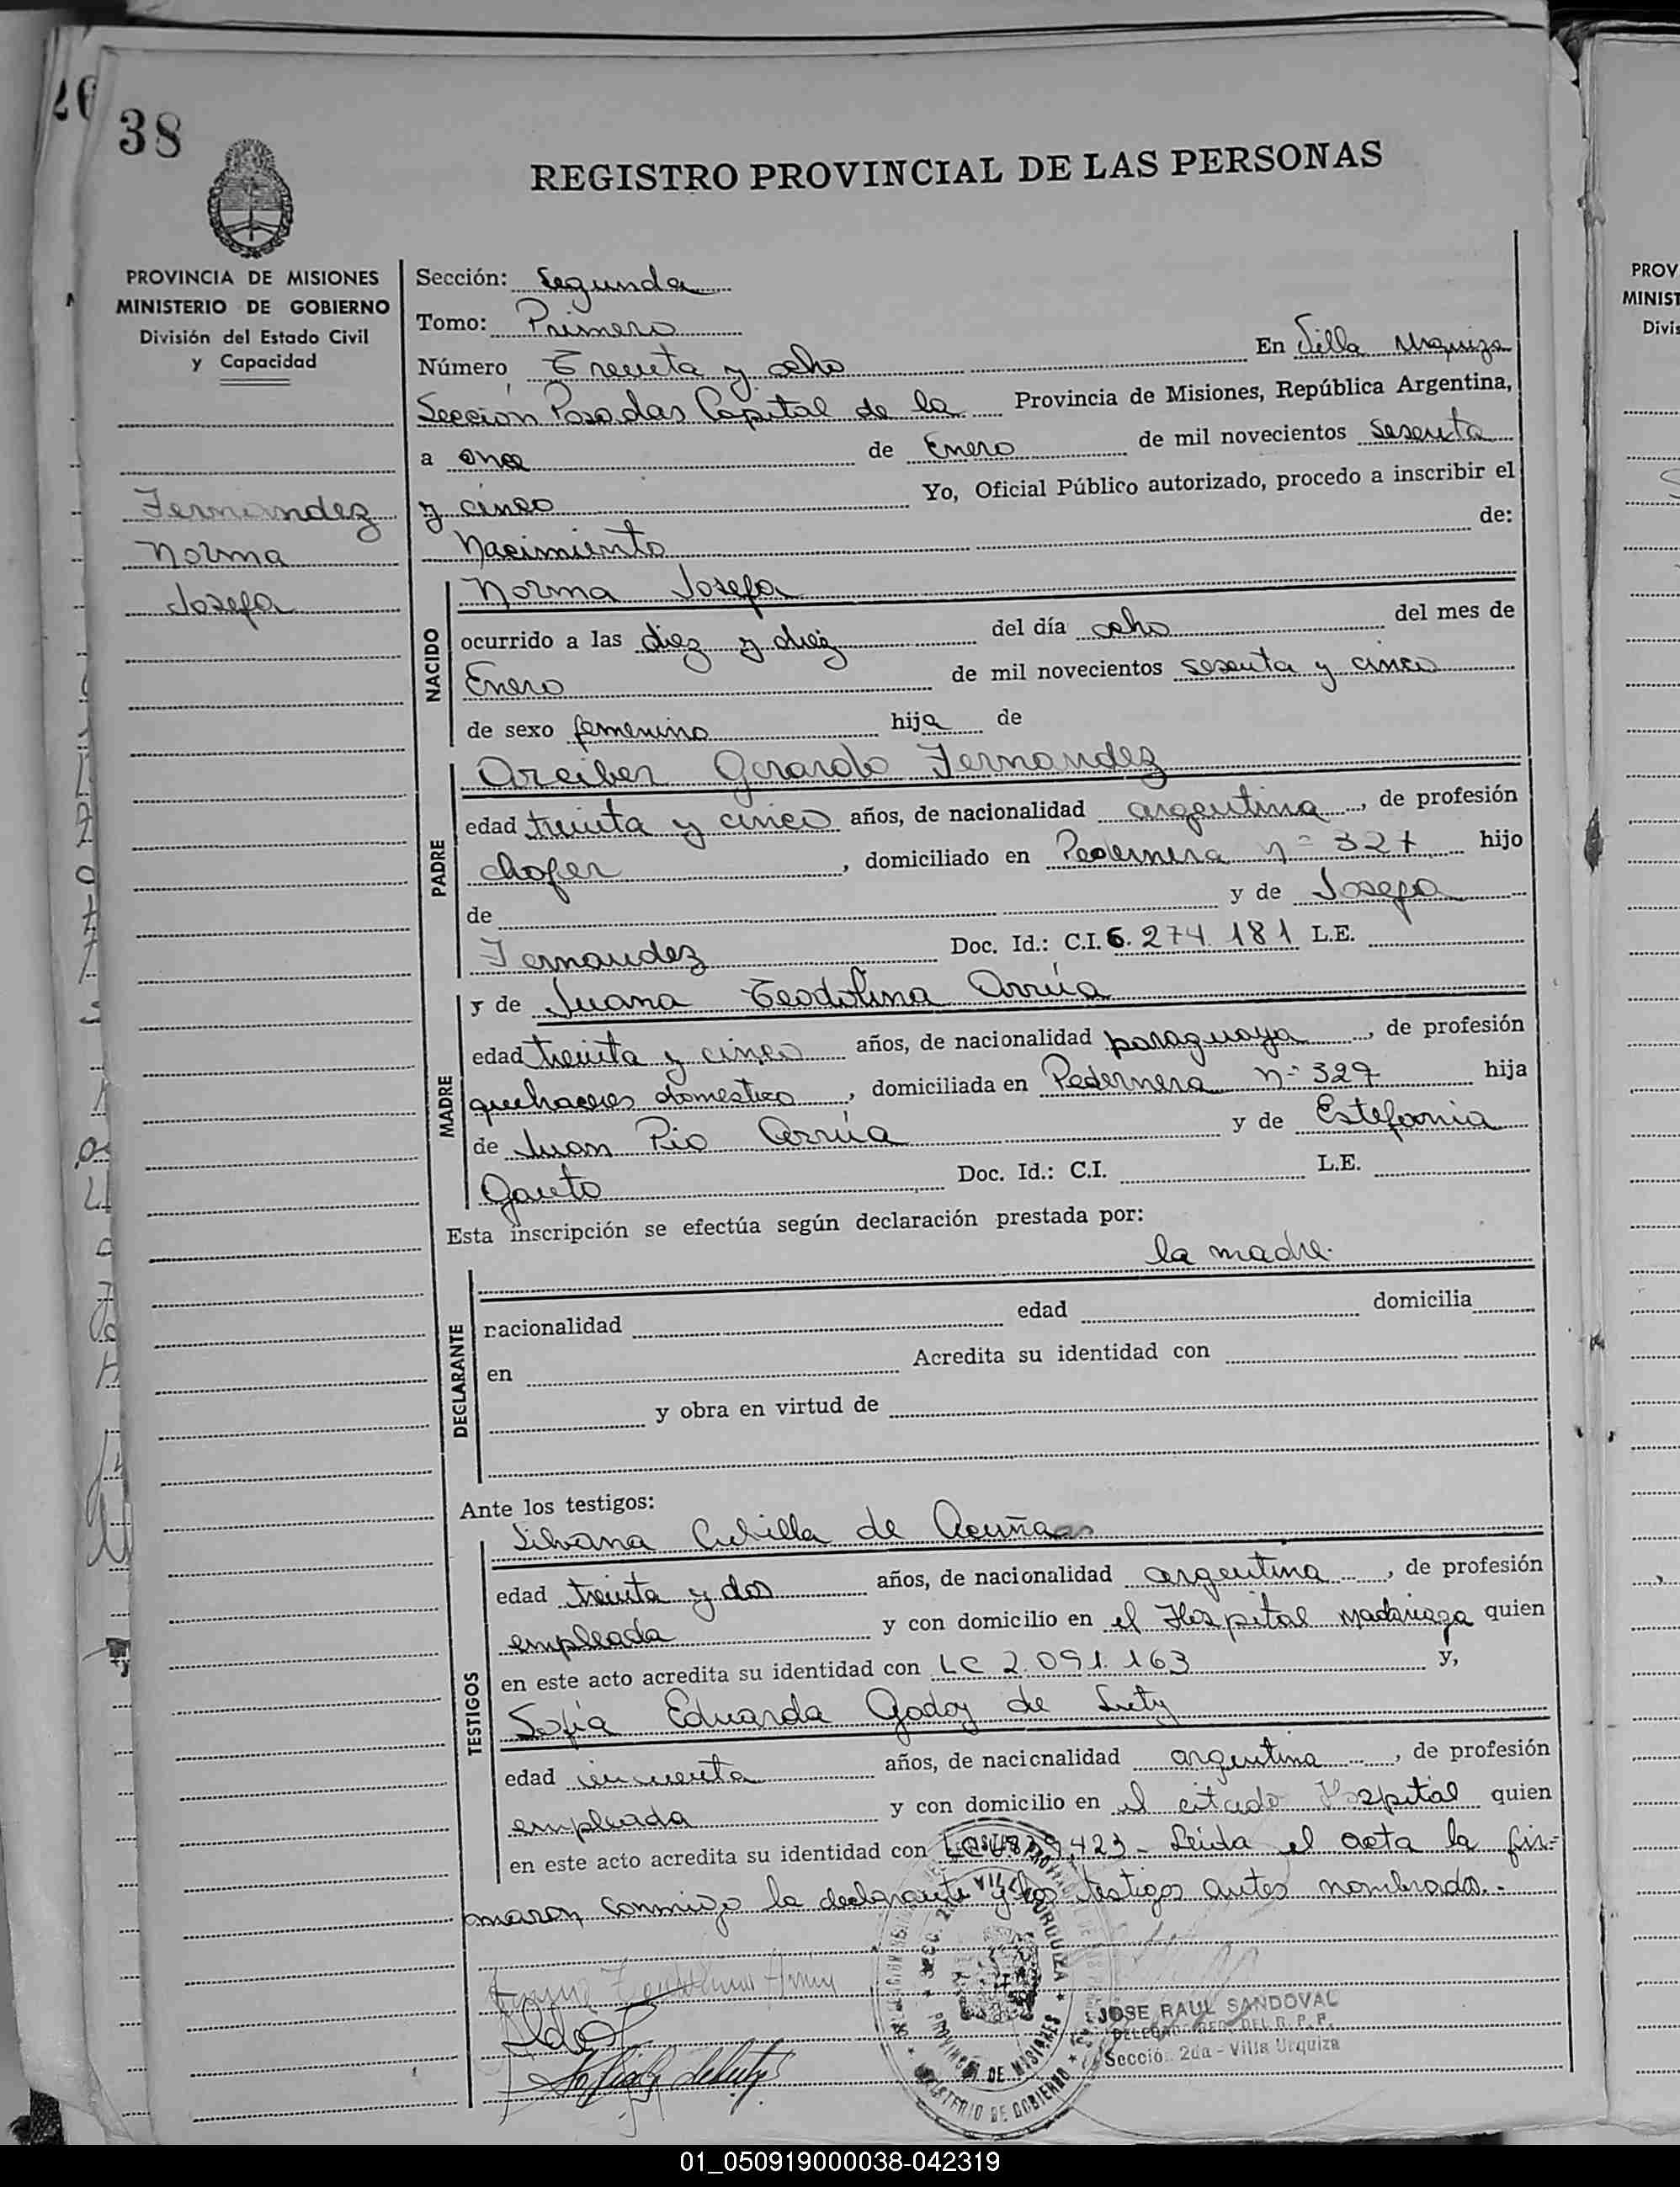 38
REGISTRO PROVINCIAL DE LAS PERSONAS
PROVINCIA DE MISIONES
MINISTERIO DE GOBIERNO
División del Estado Civil
y Capacidad
Fernandez
Norma
Josefa
Sección: Segunda
Tomo: Primero
Número Treinta y ocho En Villa Urquiza
Sección Posadas Capital de la Provincia de Misiones, República Argentina,
a once de Enero de mil novecientos sesenta
y cinco Yo, Oficial Público autorizado, procedo a inscribir el
Nacimiento de:
NACIDO
Norma Josefa
ocurrido a las diez y diez del día ocho del mes de
Enero de mil novecientos sesenta y cinco
de sexo femenino hija de
PADRE
Gerardo Fernandez
edad treinta y cinco años, de nacionalidad argentina, de profesión
chofer, domiciliado en Pedernera nº 327 hijo
de y de Josefa
Fernandez Doc. Id.: C.I. 6.274.181 L.E.
MADRE
y de Juana Teodolina Arrúa
edad treinta y cinco años, de nacionalidad paraguaya, de profesión
quehaceres domestico, domiciliada en Pedernera nº 327 hija
de Juan Pio Arrúa y de Estefania
Gauto Doc. Id.: C.I. L.E.
Esta inscripción se efectúa según declaración prestada por:
la madre.
DECLARANTE
nacionalidad edad domicilia
en Acredita su identidad con
y obra en virtud de
Ante los testigos:
TESTIGOS
Silvana Cubilla de Acuña
edad treinta y dos años, de nacionalidad argentina, de profesión
empleada y con domicilio en el Hospital Madariaga quien
en este acto acredita su identidad con LC 2.091.163 y,
Sofía Eduarda Godoy de
edad cincuenta años, de nacionalidad argentina, de profesión
empleada y con domicilio en el citado Hospital quien
en este acto acredita su identidad con 423 - Leida el acta la fir=
maron conmigo la declarante y los testigos antes nombrados.-
JOSE RAUL SANDOVAL
DEL R. P. P.
Secció. 2da - Villa Urquiza
PROV
MINIST
Divis
01_050919000038-042319